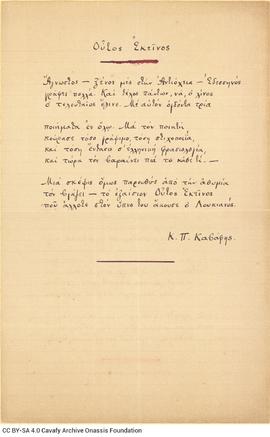 Οὗτος Ἐκεῖνος
Ἄγνωστος — ξένος μὲς στὴν Ἀντιόχεια — Ἐδεσσηνὸς
γράφει πολλά. Καὶ τέλος πάντων, νά, ὁ λίνος
ὁ τελευταῖος ἔγινε. Μὲ αὐτὸν ὀγδόντα τρία
ποιήματα ἐν ὅλῳ. Μὰ τὸν ποιητὴ
κούρασε τόσο γράψιμο, τόση στιχοποιΐα,
καὶ τόση ἔντασις σ' ἑλληνικὴ φρασιολογία,
καὶ τώρα τὸν βαραίνει πιὰ τὸ κάθε τί. —
Μιὰ σκέψις ὅμως παρευθὺς ἀπὸ τὴν ἀθυμία
τὸν βγάζει — τὸ ἐξαίσιον Οὗτος Ἐκεῖνος
ποῦ ἄλλοτε στὸν ὕπνο του ἄκουσε ὁ Λουκιανός.
Κ. Π. Καβάφης.
CC BY-SA 4.0 Cavafy Archive Onassis Foundation